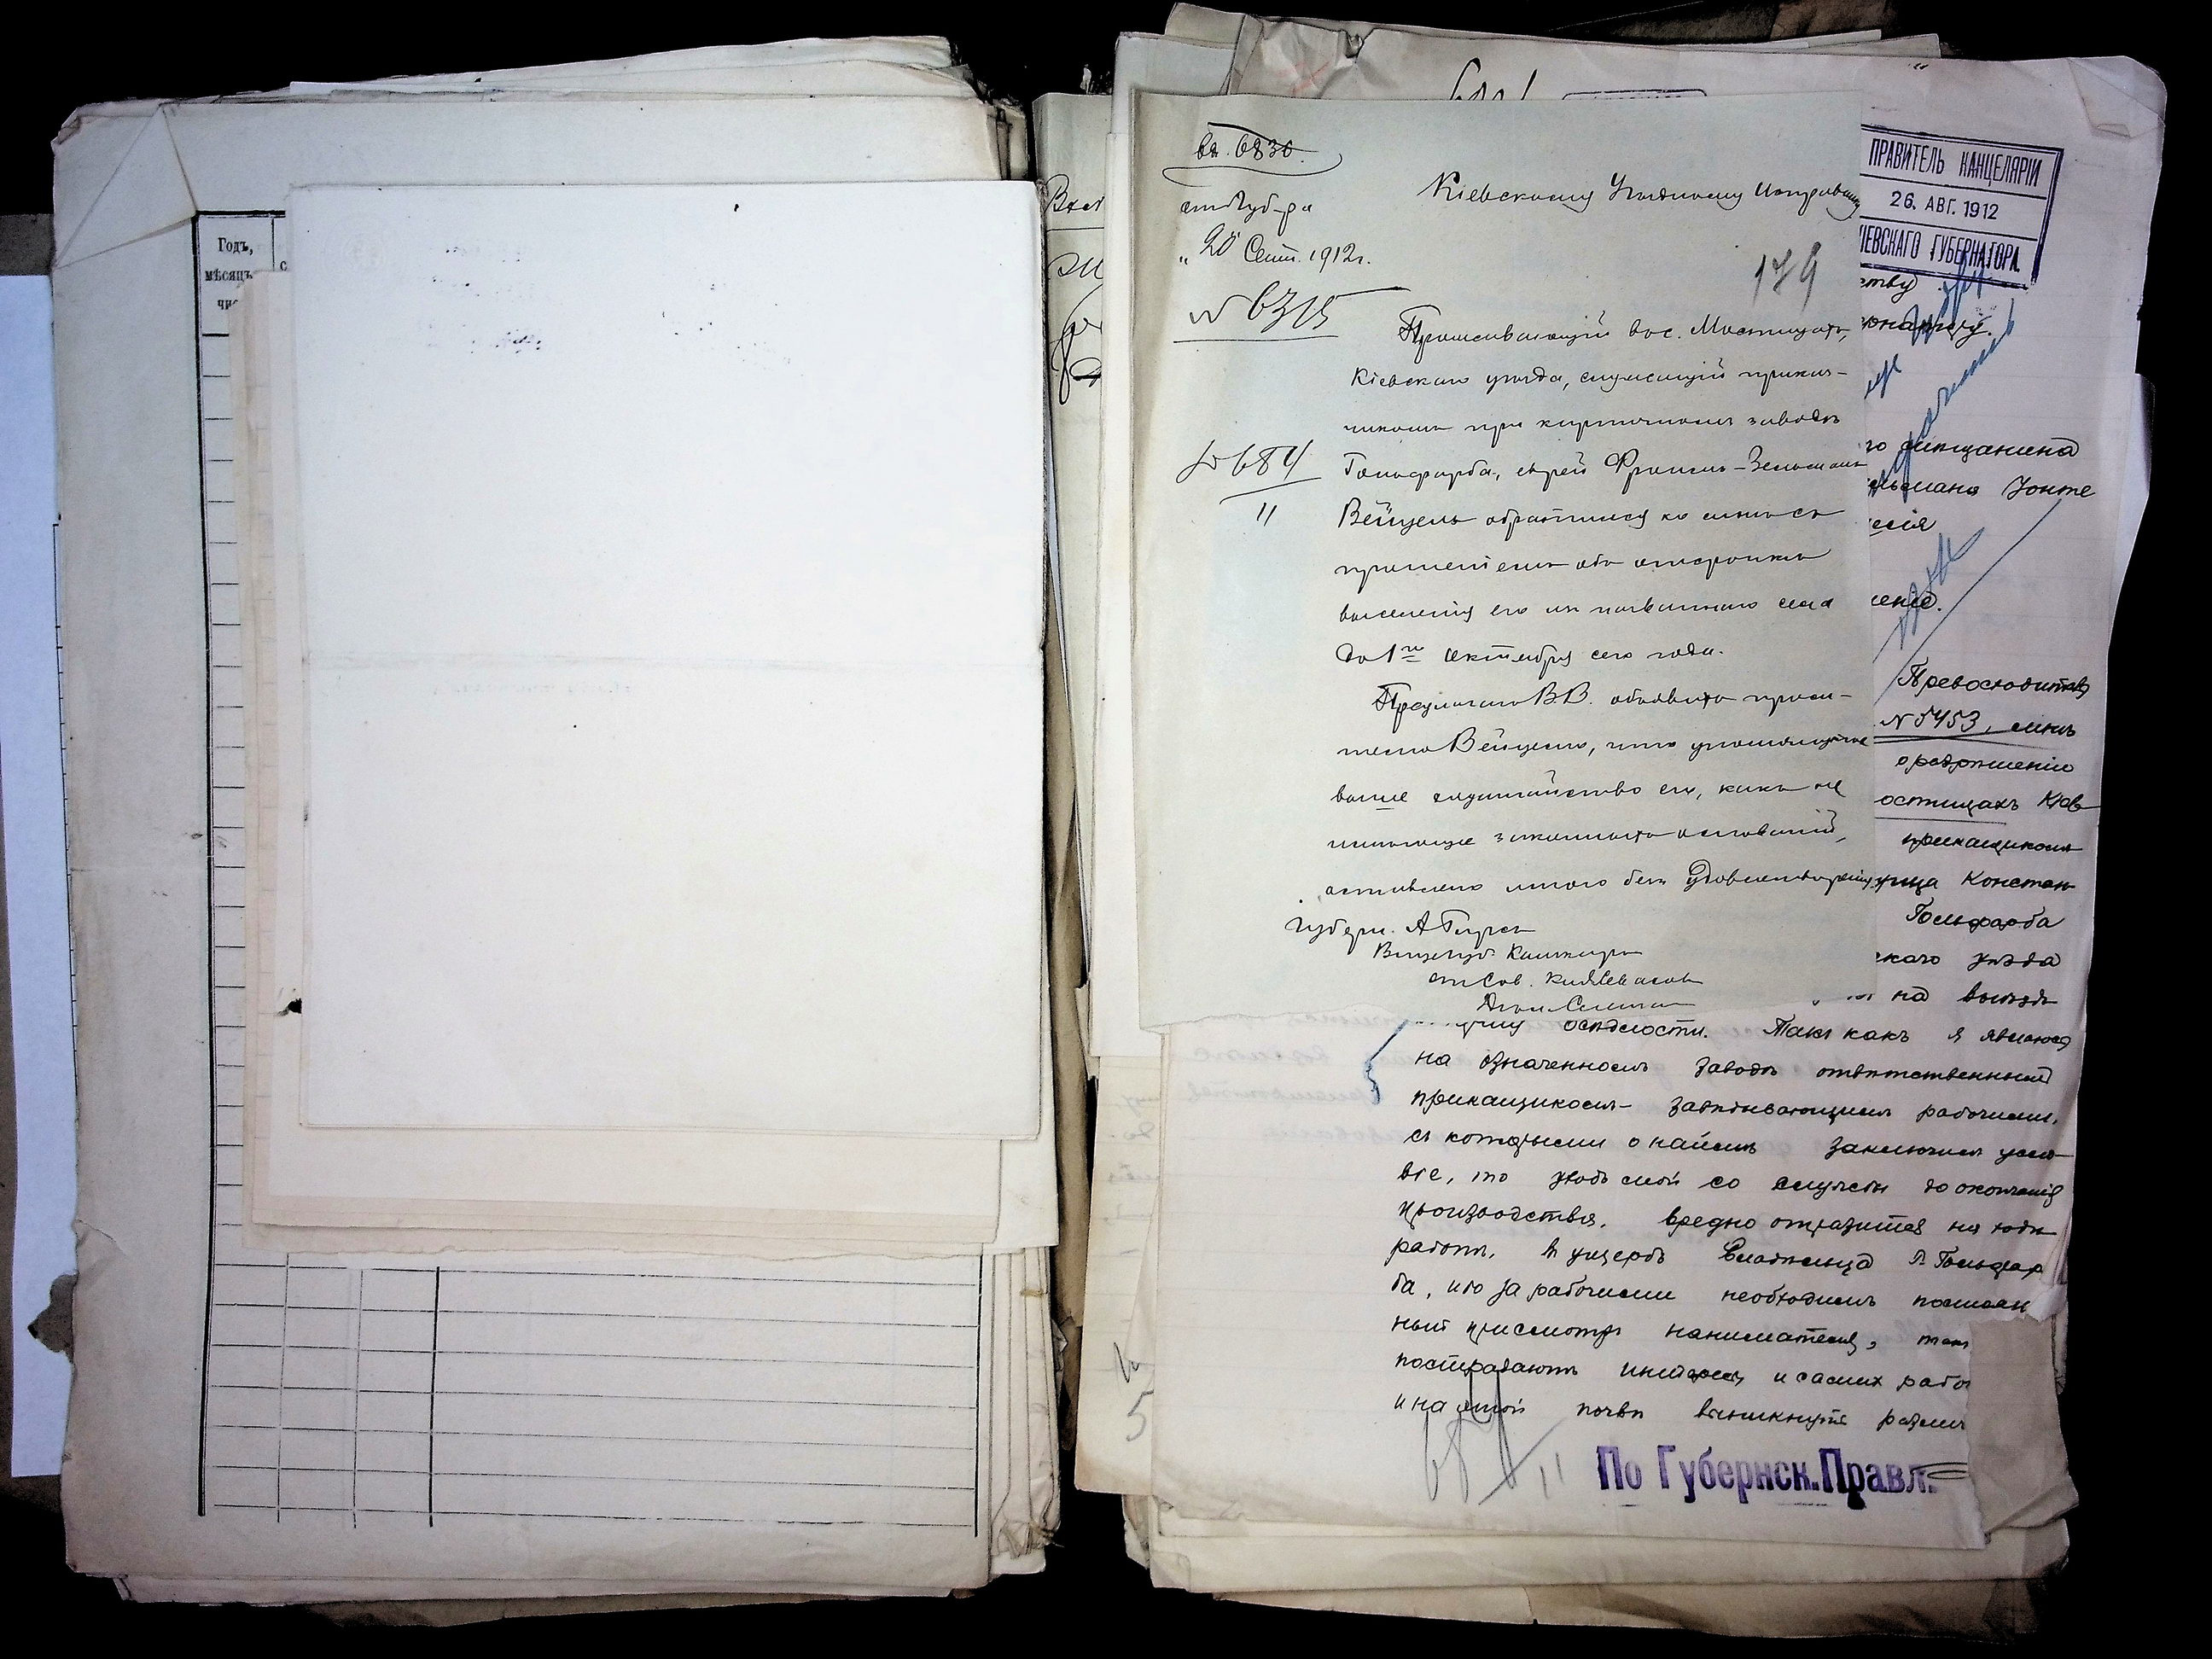 Годъ,
мѣсяцъ
вх. 6830.
отъ Губ-ра
"20" Сент. 1912 г.
№ 6315
№ 684
11
Кіевскому Уѣздному Исправнику
179
Проживающій въ с. Мостищахъ,
Кіевскаго уѣзда, служащій приказ-
чикомъ при кирпичномъ заводѣ
Гольфарба, еврей Фроимъ-Зельманъ
Вейцель обратился ко мнѣ съ
прошеніемъ объ отсрочкѣ
выселенія его изъ названнаго села
до 1го октября сего года.
Предлагаю В.В. объявить проси-
телю Вейцелю, что упомянутое
выше ходатайство его, какъ не
имѣющее законныхъ основаній,
оставлено мною безъ удовлетворенія
Губерн. А Гирсъ
Вицегуб. Кашкаровъ
ПРАВИТЕЛЬ КАНЦЕЛЯРІИ
26. АВГ. 1912
ІЕВСКАГО ГУБЕРНАТОРА.
ству
го мѣщанина
ельмана Іонте
сенія
Превосходитев
№ 5453, мнѣ
о разрѣшеніи
остищахъ Кіев
прикащикомъ
Констан
Гольфарба
скаго уѣзда
на выѣздъ
осѣдлости. Такъ какъ я являюсь
на означенномъ заводѣ отвѣтственнымъ
прикащикомъ- завѣдывающимъ рабочими,
съ которыми о наймѣ заключилъ усло-
віе, то уходъ мой со службы до окончанія
производства, вредно отразится на ходѣ
работъ, въ ущербъ владѣльца Г. Гольдфар
ба, ибо за рабочими необходимъ постоян
ный присмотръ нанимателя, такъ
пострадаютъ интересы и самихъ рабоч
и на этой почвѣ возникнутъ различ
684
11
По Губернск. Правл.
5